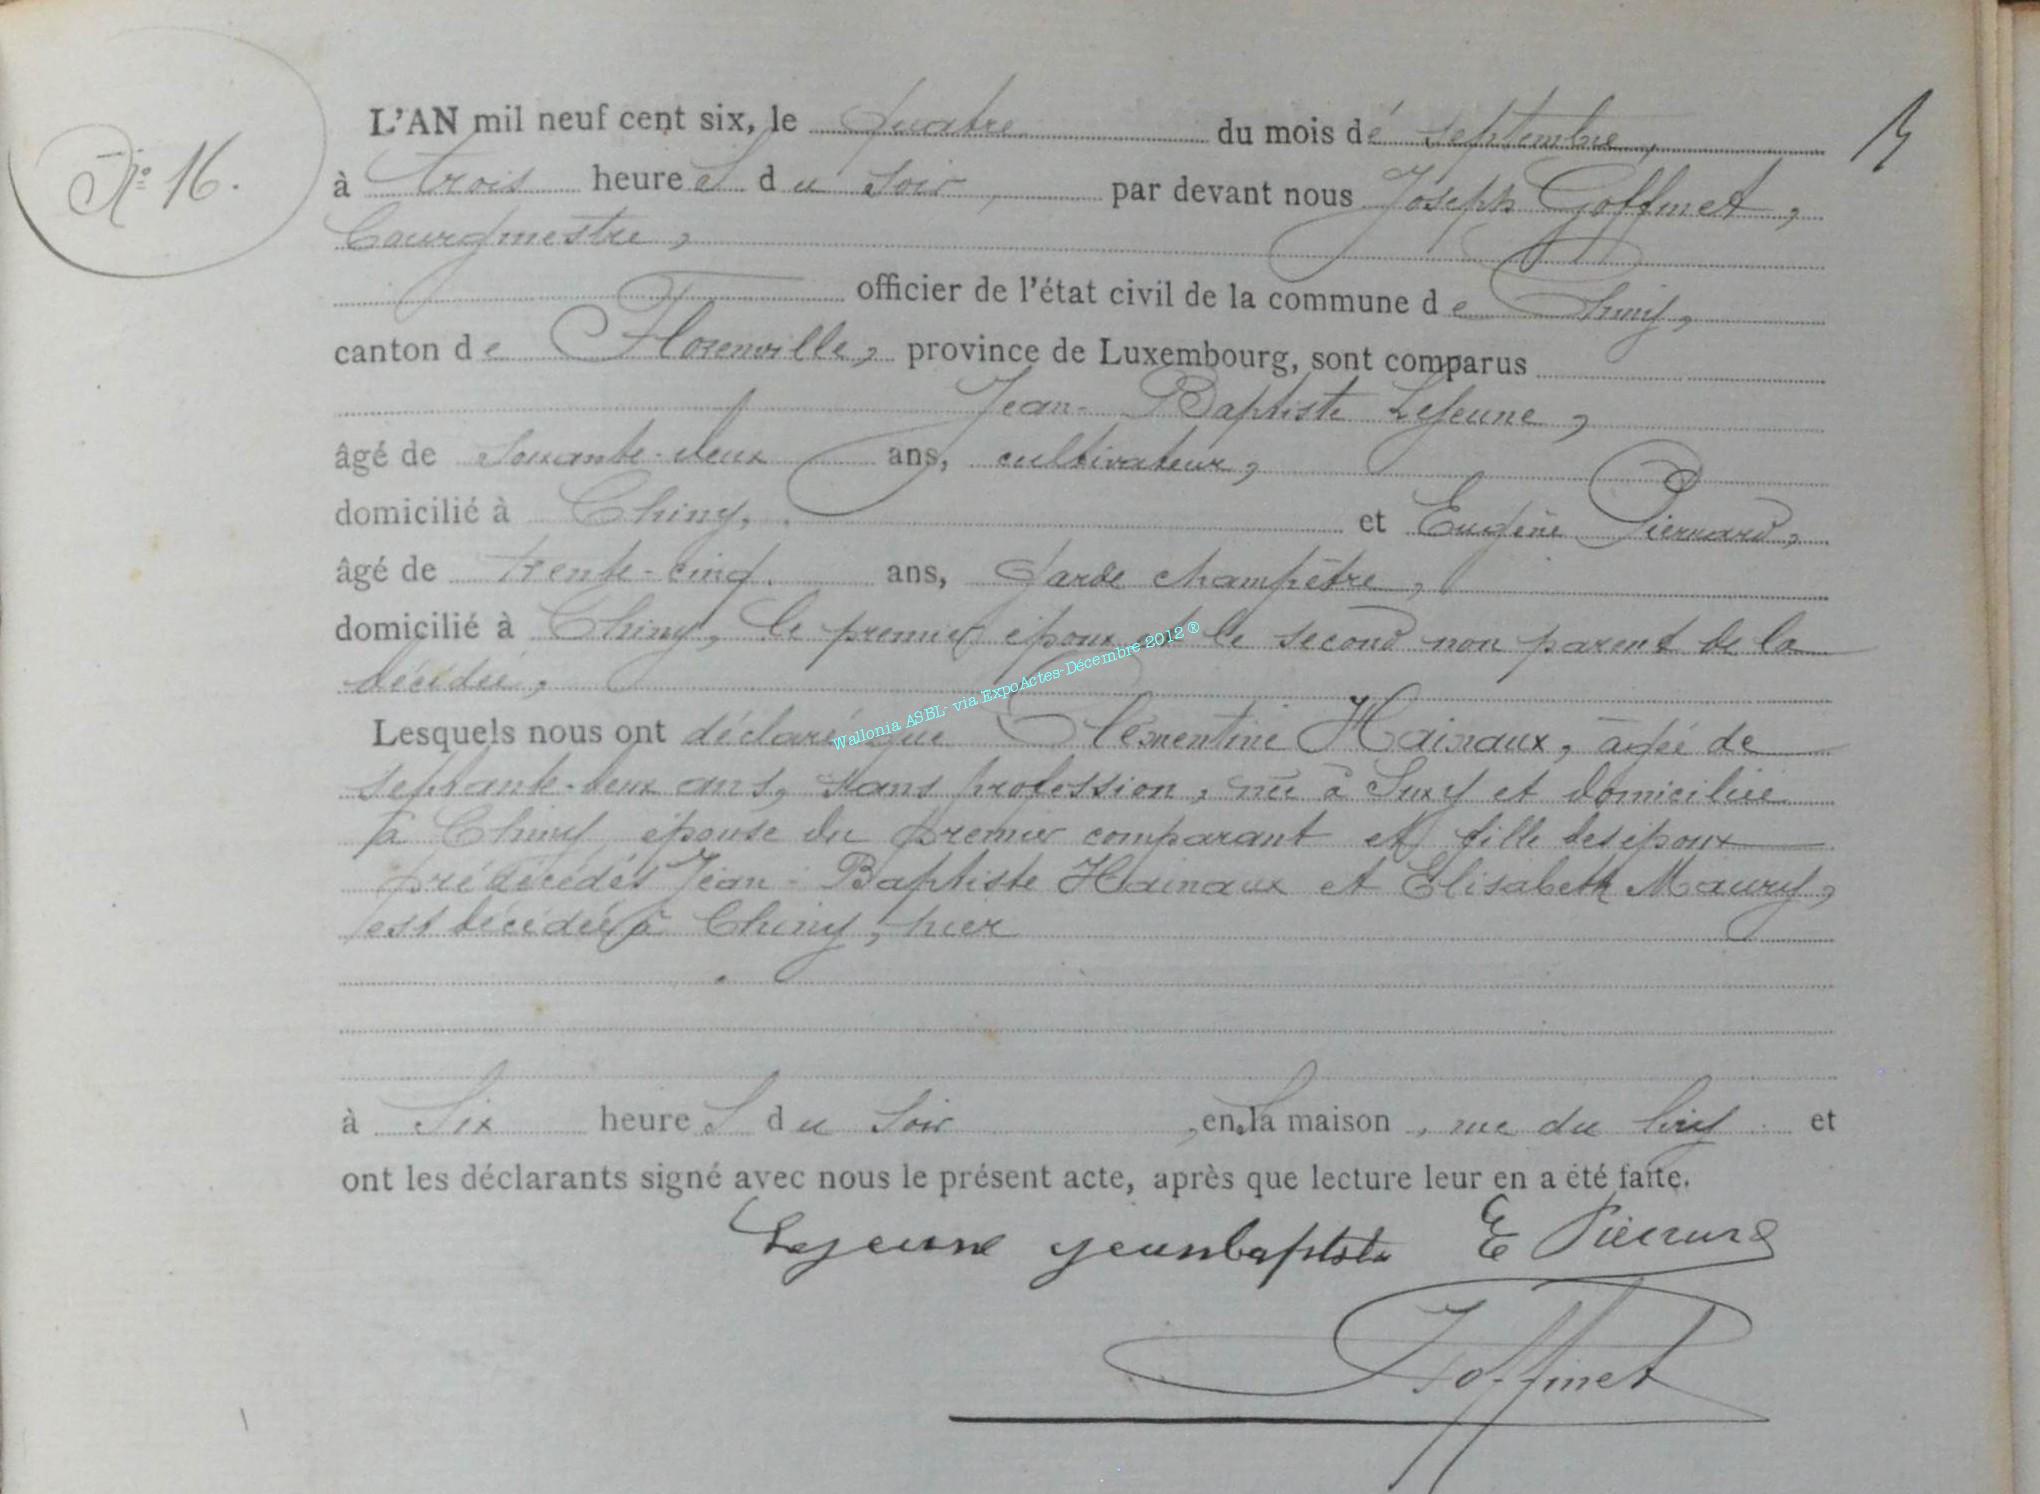 N° 16.
L'AN mil neuf cent six, le quatre du mois de septembre,
à trois heures du soir, par devant nous Joseph Goffinet,
bourgmestre,
officier de l'état civil de la commune de Chiny,
canton de Florenville, province de Luxembourg, sont comparus
Jean-Baptiste Lejeune,
âgé de soixante-deux ans, cultivateur,
domicilié à Chiny, et Eugène Pierrard,
âgé de trente-cinq ans, garde champêtre,
domicilié à Chiny, le premier époux et le second non parent de la
décédée,
Lesquels nous ont déclaré que Clémentine Hainaux, âgée de
septante-deux ans, sans profession, née à Suxy et domiciliée
à Chiny épouse du premier comparant et fille des époux
prédécédés Jean-Baptiste Hainaux et Elisabeth Maury,
est décédée à Chiny, hier
à six heures du soir, en sa maison, rue du et
ont les déclarants signé avec nous le présent acte, après que lecture leur en a été faite.
Lejeune jeanbaptiste E Pierrard
J Goffinet
Wallonia ASBL- via ExpoActes-Décembre 2012 ®